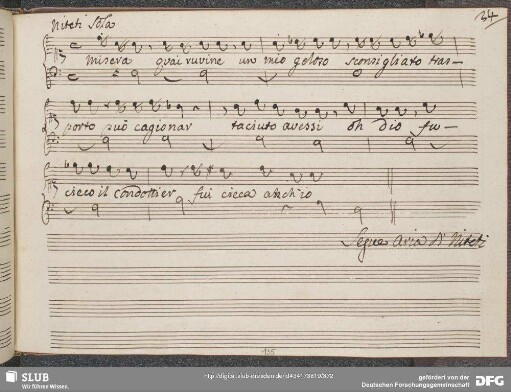 Niteti Sola
34
misera quai ruvine un mio geloso sconsigliato tras-
porto può cagionar taciuto avessi oh dio fu-
cieco il condottier fui cieca anch'io
Segue Aria di Niteti
195
SLUB
Wir führen Wissen.
gefördert von der
Deutschen Forschungsgemeinschaft
DFG